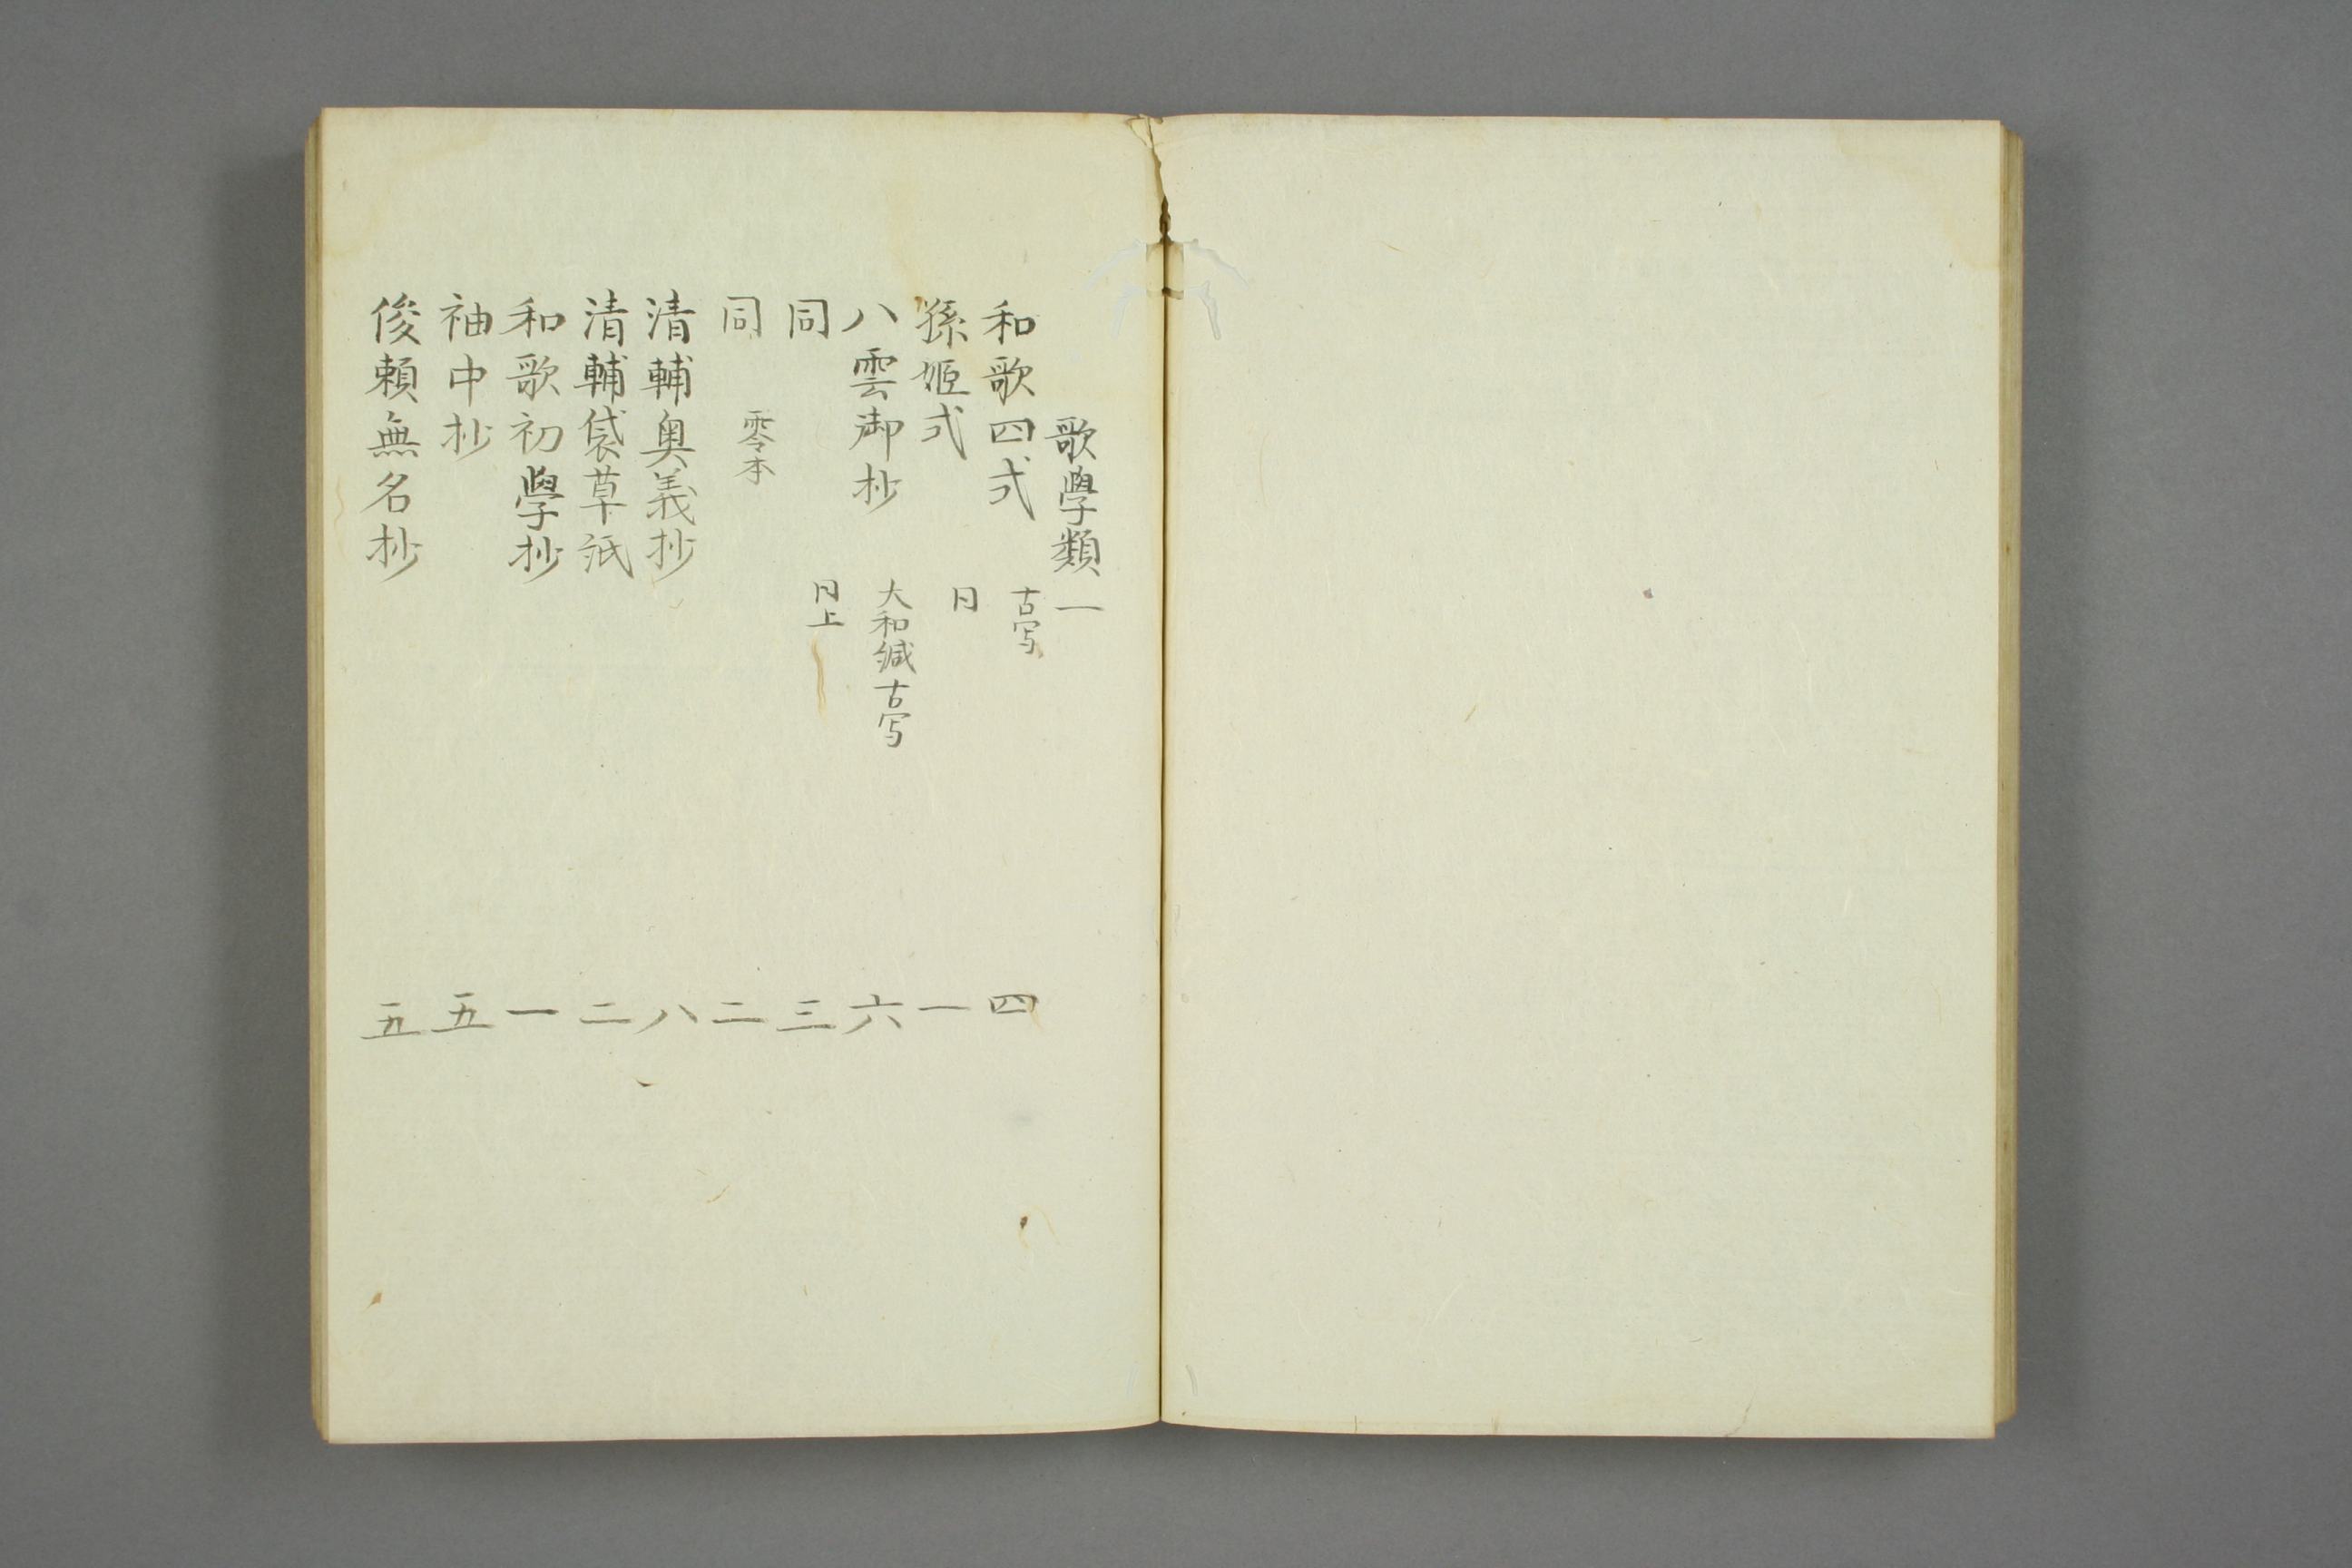 歌學類一
和歌四式 古写 四
孫姬式 同 一
八雲御抄 大和緘古写 六
同 同上 三
同 零本 二
清輔奥義抄 八
清輔袋草紙 二
和歌初學抄 一
袖中抄 五
俊頼無名抄 五